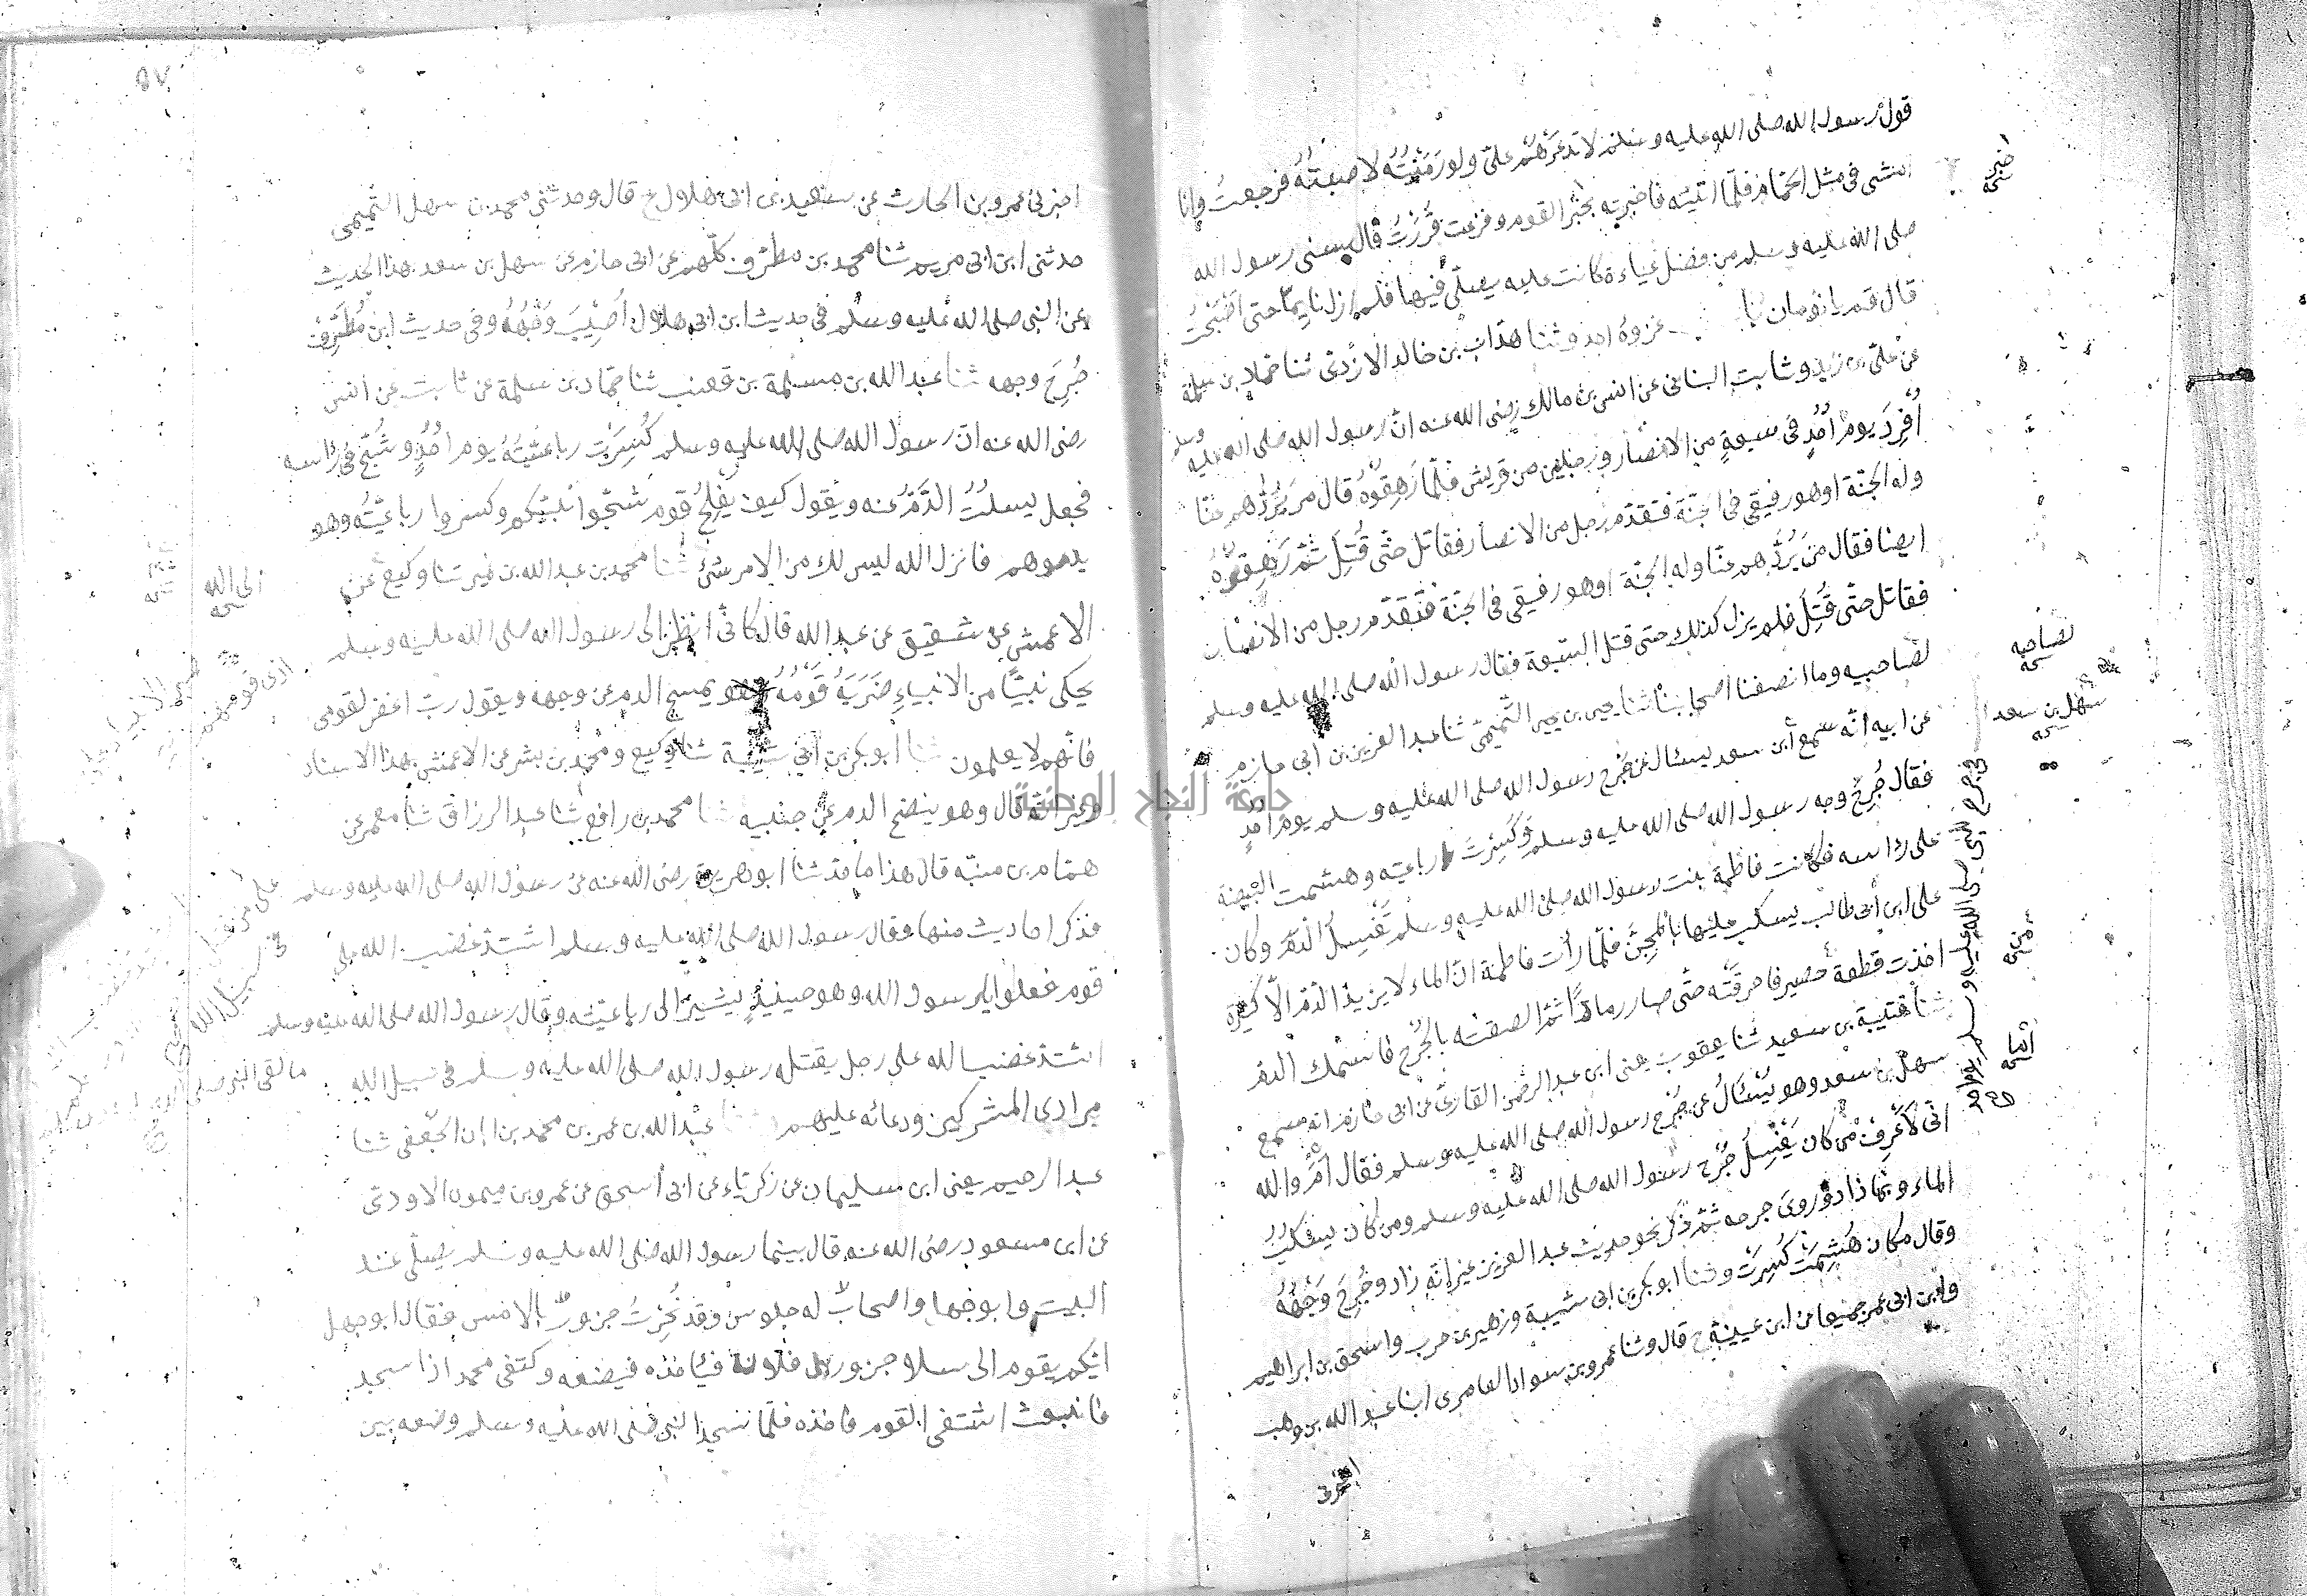 قول رسول الله صلى الله عليه وسلم لا تدعرهم على ولو رميته لاصبته فرجعت وانا
امشى فى مثل الحمام فلما اتيته فاخبرته بخبر القوم وفرغت قررت قال فالبسنى رسول الله
صلى الله عليه وسلم من فضل عباءة كانت عليه يصلى فيها فلم ازل نايما حتى اصبحت
قال قم يا نومان غزوة احد وثنا هداب بن خالد الازدى ثنا حماد بن سلمة
عن على بن زيد وثابت البنانى عن انس بن مالك رضى الله عنه ان رسول الله صلى الله عليه وسلم
اُفْرِدَ يوم اُحُدٍ فى سبعة من الانصار ورجلين من قريش فلما رَهِقُوهُ قال من يَرُدُّهم عنا
وله الجنة او هو رفيقى فى الجنة فتقدم رجل من الانصار فقاتل حتى قُتِلَ ثم رَهِقوه
ايضا فقال من يَرُدُّهم عنا وله الجنة او هو رفيقى فى الجنة فتقدم رجل من الانصار
فقاتل حتى قُتِلَ فلم يزل كذلك حتى قتل السبعة فقال رسول الله صلى الله عليه وسلم
لصاحبيه وما انصفنا اصحابنا ثنا يحيى بن يحيى التميمى ثنا عبد العزيز بن ابى حازم
عن ابيه انه سمع ابن سعد يسئال عن جُرح رسول الله صلى الله عليه وسلم يوم اُحُدٍ
فقال جُرِحَ وجه رسول الله صلى الله عليه وسلم وكُسِرَتْ رباعيته وهشمت البيضة
على راسه فكانت فاطمة بنت رسول الله صلى الله عليه وسلم تَغْسِلُ الدَّمَ وكان
على ابن ابى طالب يسكب عليها بالمِجَنِّ فلما رأت فاطمة ان الماء لا يزيد الدم الا كثرة
اخذت قطعة حصير فاحرقته حتى صار رمادًا ثم الصقته بالجُرح فاستمسك الدم
ثنا قتيبة بن سعيد ثنا يعقوب يعنى ابن عبد الرحمن القارى عن ابى حازم انه سمع
سهل بن سعد وهو يُسْئَالُ عن جُرح رسول الله صلى الله عليه وسلم فقال اَمَ والله
انى لاَعْرِف من كان يَغْسِلُ جُرح رسول الله صلى الله عليه وسلم ومن كان يسكبُ
الماء وبماذا دُوْوِىَ جرحه ثم ذكر نحو حديث عبد العزيز غير انه زاد وجُرِحَ وَجْهُهُ
وقال مكان هُشِمَتْ كُسِرَتْ وثنا ابو بكر بن ابى شيبة وزهير بن حرب واسحق بن ابراهيم
وابن ابى عمر جميعا عن ابن عيينة ح قال وثنا عمرو بن سواد العامرى ابنا عبد الله بن وهب
اخبرنى
اخبر
نسخه
لصاحبه
نسخه
سهل بن سعد
نسخه
فى جرح النبى صلى الله عليه وسلم يوم احد
من
نسخه
نسخه
٥٧
اخبرنى عمرو بن الحارث عن سعيد بن ابى هلال ح قال وحدثنى محمد بن سهل التميمى
حدثنى ابن ابى مريم ثنا محمد بن مطرف كلهم عن ابى حازم عن سهل بن سعد بهذا الحديث
عن النبى صلى الله عليه وسلم فى حديث ابن ابى هلال اُصِيْبَ وَجْهُهُ وفى حديث ابن مُطَرِّف
جُرِحَ وجهه ثنا عبد الله بن مسلمة بن قعنب ثنا حماد بن سلمة عن ثابت عن انس
رضى الله عنه ان رسول الله صلى الله عليه وسلم كُسِرَتْ رباعيتُهُ يوم اُحُدٍ وشُجَّ فى رأسه
فجعل يسلُتُ الدَّمَ عنه ويقول كيف يُفْلِحُ قوم شجّوا نبيّكم وكسروا رباعيتُه وهو
يدعوهم فانزل الله ليس لك من الامر شئ ثنا محمد بن عبد الله بن نمير ثنا وكيع عن
الاعمش عن شقيق عن عبد الله قال كانى انظر الى رسول الله صلى الله عليه وسلم
يحكى نبيًّا من الانبياءِ ضَرَبَهُ قَوْمُهُ وهو يمسح الدم عن وجهه ويقول رب اغفر لقومى
فانهم لا يعلمون ثنا ابو بكر بن ابى شيبة ثنا وكيع ومحمد بن بشر عن الاعمش بهذا الاسناد
وغير انه قال وهو ينضح الدم عن جنبيه ثنا محمد بن رافع ثنا عبد الرزاق ثنا معمر عن
همام بن منبّه قال هذا ما حدثنا ابو هريرة رضى الله عنه عن رسول الله صلى الله عليه وسلم
فذكر احاديث منها وقال رسول الله صلى الله عليه وسلم اشتد غضب الله على
قوم فعلوا برسول الله وهو حينيذٍ يشير الى رباعيته وقال رسول الله صلى الله عليه وسلم
اشتد غضب الله على رجل يقتله رسول الله صلى الله عليه وسلم فى سبيل الله
من اذى المشركين ودعائه عليهم ثنا عبد الله بن عمر بن محمد بن ابان الجعفى ثنا
عبد الرحيم يعنى ابن سليمان عن زكرياء عن ابى اسحق عن عمرو بن ميمون الاودى
عن ابى مسعود رضى الله عنه قال بينما رسول الله صلى الله عليه وسلم يصلى عند
البيت وابو جهل واصحابٌ له جلوس وقد نُحِرَتْ جزورٌ بالامس فقال ابو جهل
ايكم يقوم الى سلا جزور بنى فلان فياخذه فيضعه وكتفى محمد اذا سجد
فانبعث اشقى القوم فاخذه فلما سجد النبى صلى الله عليه وسلم وضعه بين
الى الله
نسخه
اذى قومهم
فى سبيل الله
ما لقى النبى صلى
جامعة النجاح الوطنية